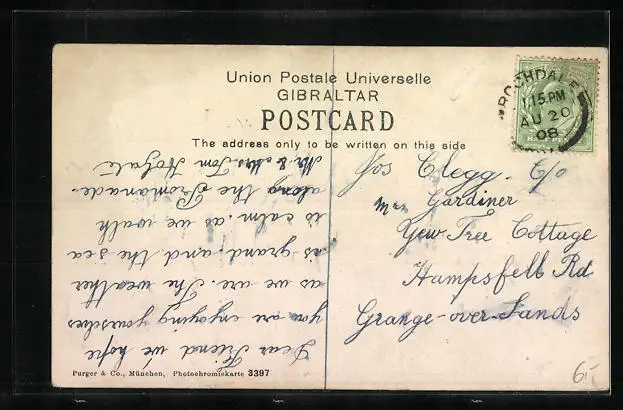 Union Postale Universelle
GIBRALTAR
POSTCARD
The address only to be written on this side
ROCHDALE
1.15.PM
AU 20
08
Jos Clegg. C/o
Mrs Gardiner
Yew Tree Cottage
Hampsfell Rd
Grange-over-Sands
Dear Friend we hope
you are enjoying yourselves
as we are. The weather
is grand, and the sea
is calm. as we walk
along the Promanade.
Mr. & Mrs. Tom
Purger & Co., München, Photochromiekarte 3397
6,-